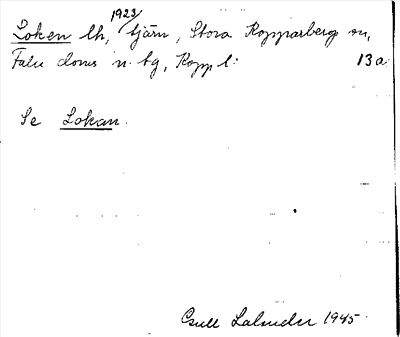 Loken lh, 1923 tjärn, Stora Kopparbergs sn,
Falu doms n. tg, Kopp l: 13a
Se Lokan.
Lalander 1945